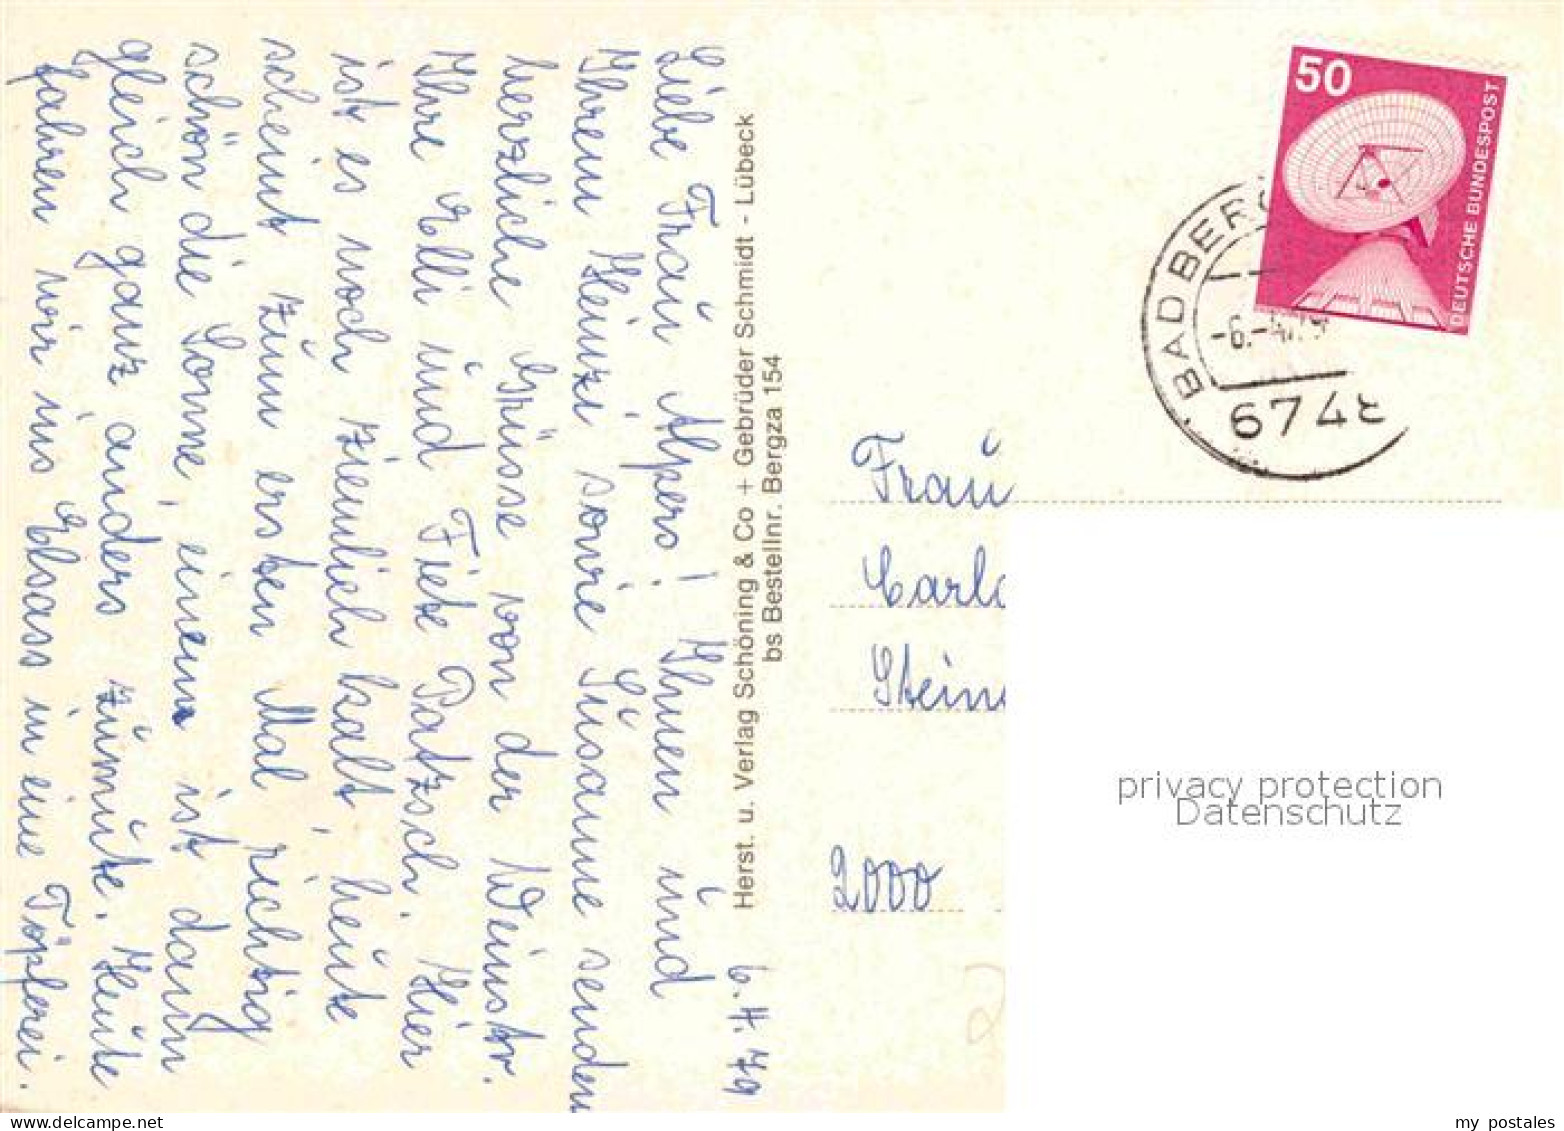 6.4.79
Liebe Frau Alpers! Ihnen und
Ihrem Heinzi sowie Susanne senden
herzliche Grüsse von der Weinstr.
Ihre Elli und Fiete Patzsch. Hier
ist es noch ziemlich kalt, heute
scheint zum ersten Mal richtig
schön die Sonne, einem ist dann
gleich ganz anders zumute. Heute
fahren wir ins Elsass in eine Töpferei.
Herst. u. Verlag Schöning & Co + Gebrüder Schmidt - Lübeck
bs Bestellnr. Bergza 154
50
DEUTSCHE BUNDESPOST
BAD BERG
-6.-4.79
6748
Frau
Carl
Stein
2000
privacy protection
Datenschutz
delcampe.net
my postales